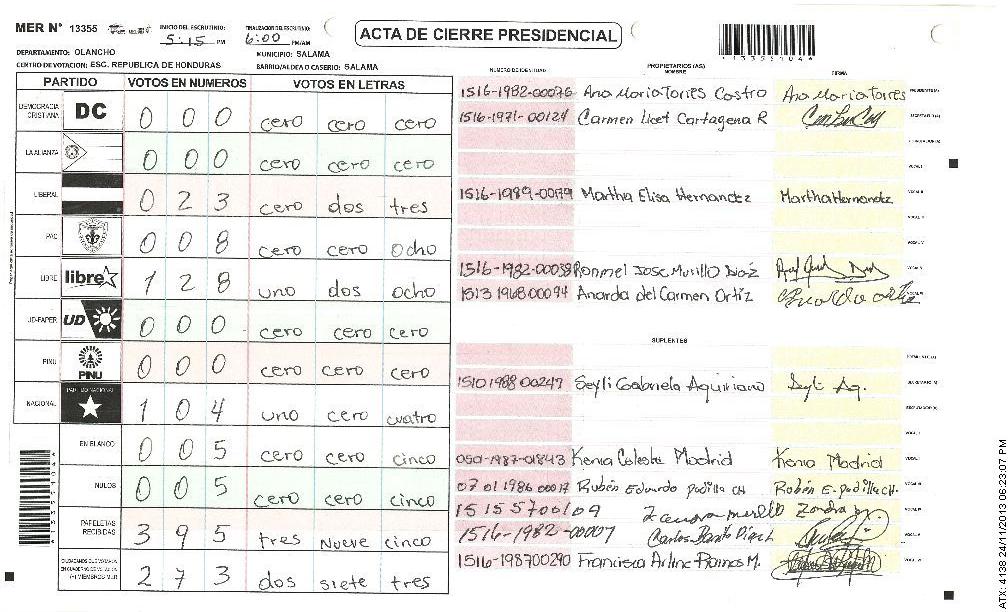 MER N° 13355
INICIO DEL ESCRUTINIO:
5:15 PM
FINALIZACION DEL ESCRUTINIO:
6:00 PM/AM
ACTA DE CIERRE PRESIDENCIAL
1335510464
DEPARTAMENTO: OLANCHO
MUNICIPIO: SALAMA
CENTRO DE VOTACION: ESC. REPUBLICA DE HONDURAS
BARRIO/ALDEA O CASERIO: SALAMA
PARTIDO VOTOS EN NUMEROS VOTOS EN LETRAS
DEMOCRACIA CRISTIANA DC 0 0 0 cero cero cero
LA ALIANZA 0 0 0 cero cero cero
LIBERAL 0 2 3 cero dos tres
PAC 0 0 8 cero cero ocho
LIBRE libre 1 2 8 uno dos ocho
UD-FAPER UD 0 0 0 cero cero cero
PINU PINU 0 0 0 cero cero cero
NACIONAL PARTIDO NACIONAL 1 0 4 uno cero cuatro
EN BLANCO 0 0 5 cero cero cinco
NULOS 0 0 5 cero cero cinco
PAPELETAS RECIBIDAS 3 9 5 tres nueve cinco
CIUDADANOS QUE VOTARON EN CUADERNO DE VOTACION (+) MIEMBROS MER 2 7 3 dos siete tres
NUMERO DE IDENTIDAD PROPIETARIOS (AS) NOMBRE FIRMA
1516-1982-00076 Ana Maria Torres Castro Ana Maria Torres PRESIDENTE (A)
1516-1971-00124 Carmen Licet Cartagena R SECRETARIO (A)
ESCRUTADOR (A)
VOCAL I
1516-1989-00179 Martha Elisa Hernandez Martha Hernandez VOCAL II
VOCAL III
VOCAL IV
1516-1982-00038 Ronmel Jose Murillo Diaz VOCAL V
1513 1968 00094 Anarda del Carmen Ortiz VOCAL VI
SUPLENTES
PRESIDENTE (A)
1510 1988 00247 Seyli Gabriela Aquiriano Seyli Aq. SECRETARIO (A)
ESCRUTADOR (A)
VOCAL I
Kenia Celeste Madrid Kenia Madrid VOCAL II
07 01 1986 00017 Rubén Eduardo Padilla CH Rubén E. Padilla CH. VOCAL III
15 15 5700109 VOCAL IV
1516-1982-00007 Carlos VOCAL V
1516-198700290 Francisca Arline Ramos M. VOCAL VI
ATX 4138 24/11/2013 06:23:07 PM